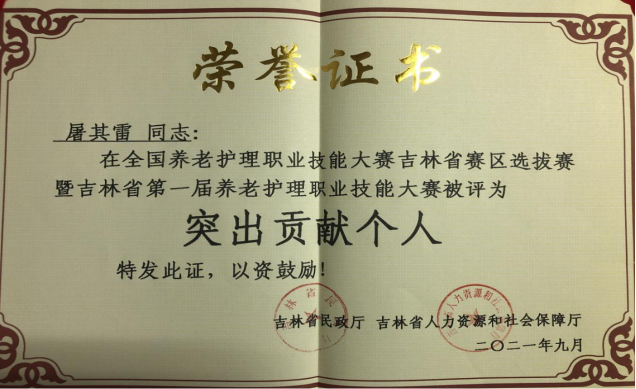 荣誉证书
屠其雷 同志：
在全国养老护理职业技能大赛吉林省赛区选拔赛
暨吉林省第一届养老护理职业技能大赛被评为
突出贡献个人
特发此证，以资鼓励！
吉林省民政厅 吉林省人力资源和社会保障厅
二〇二一年九月